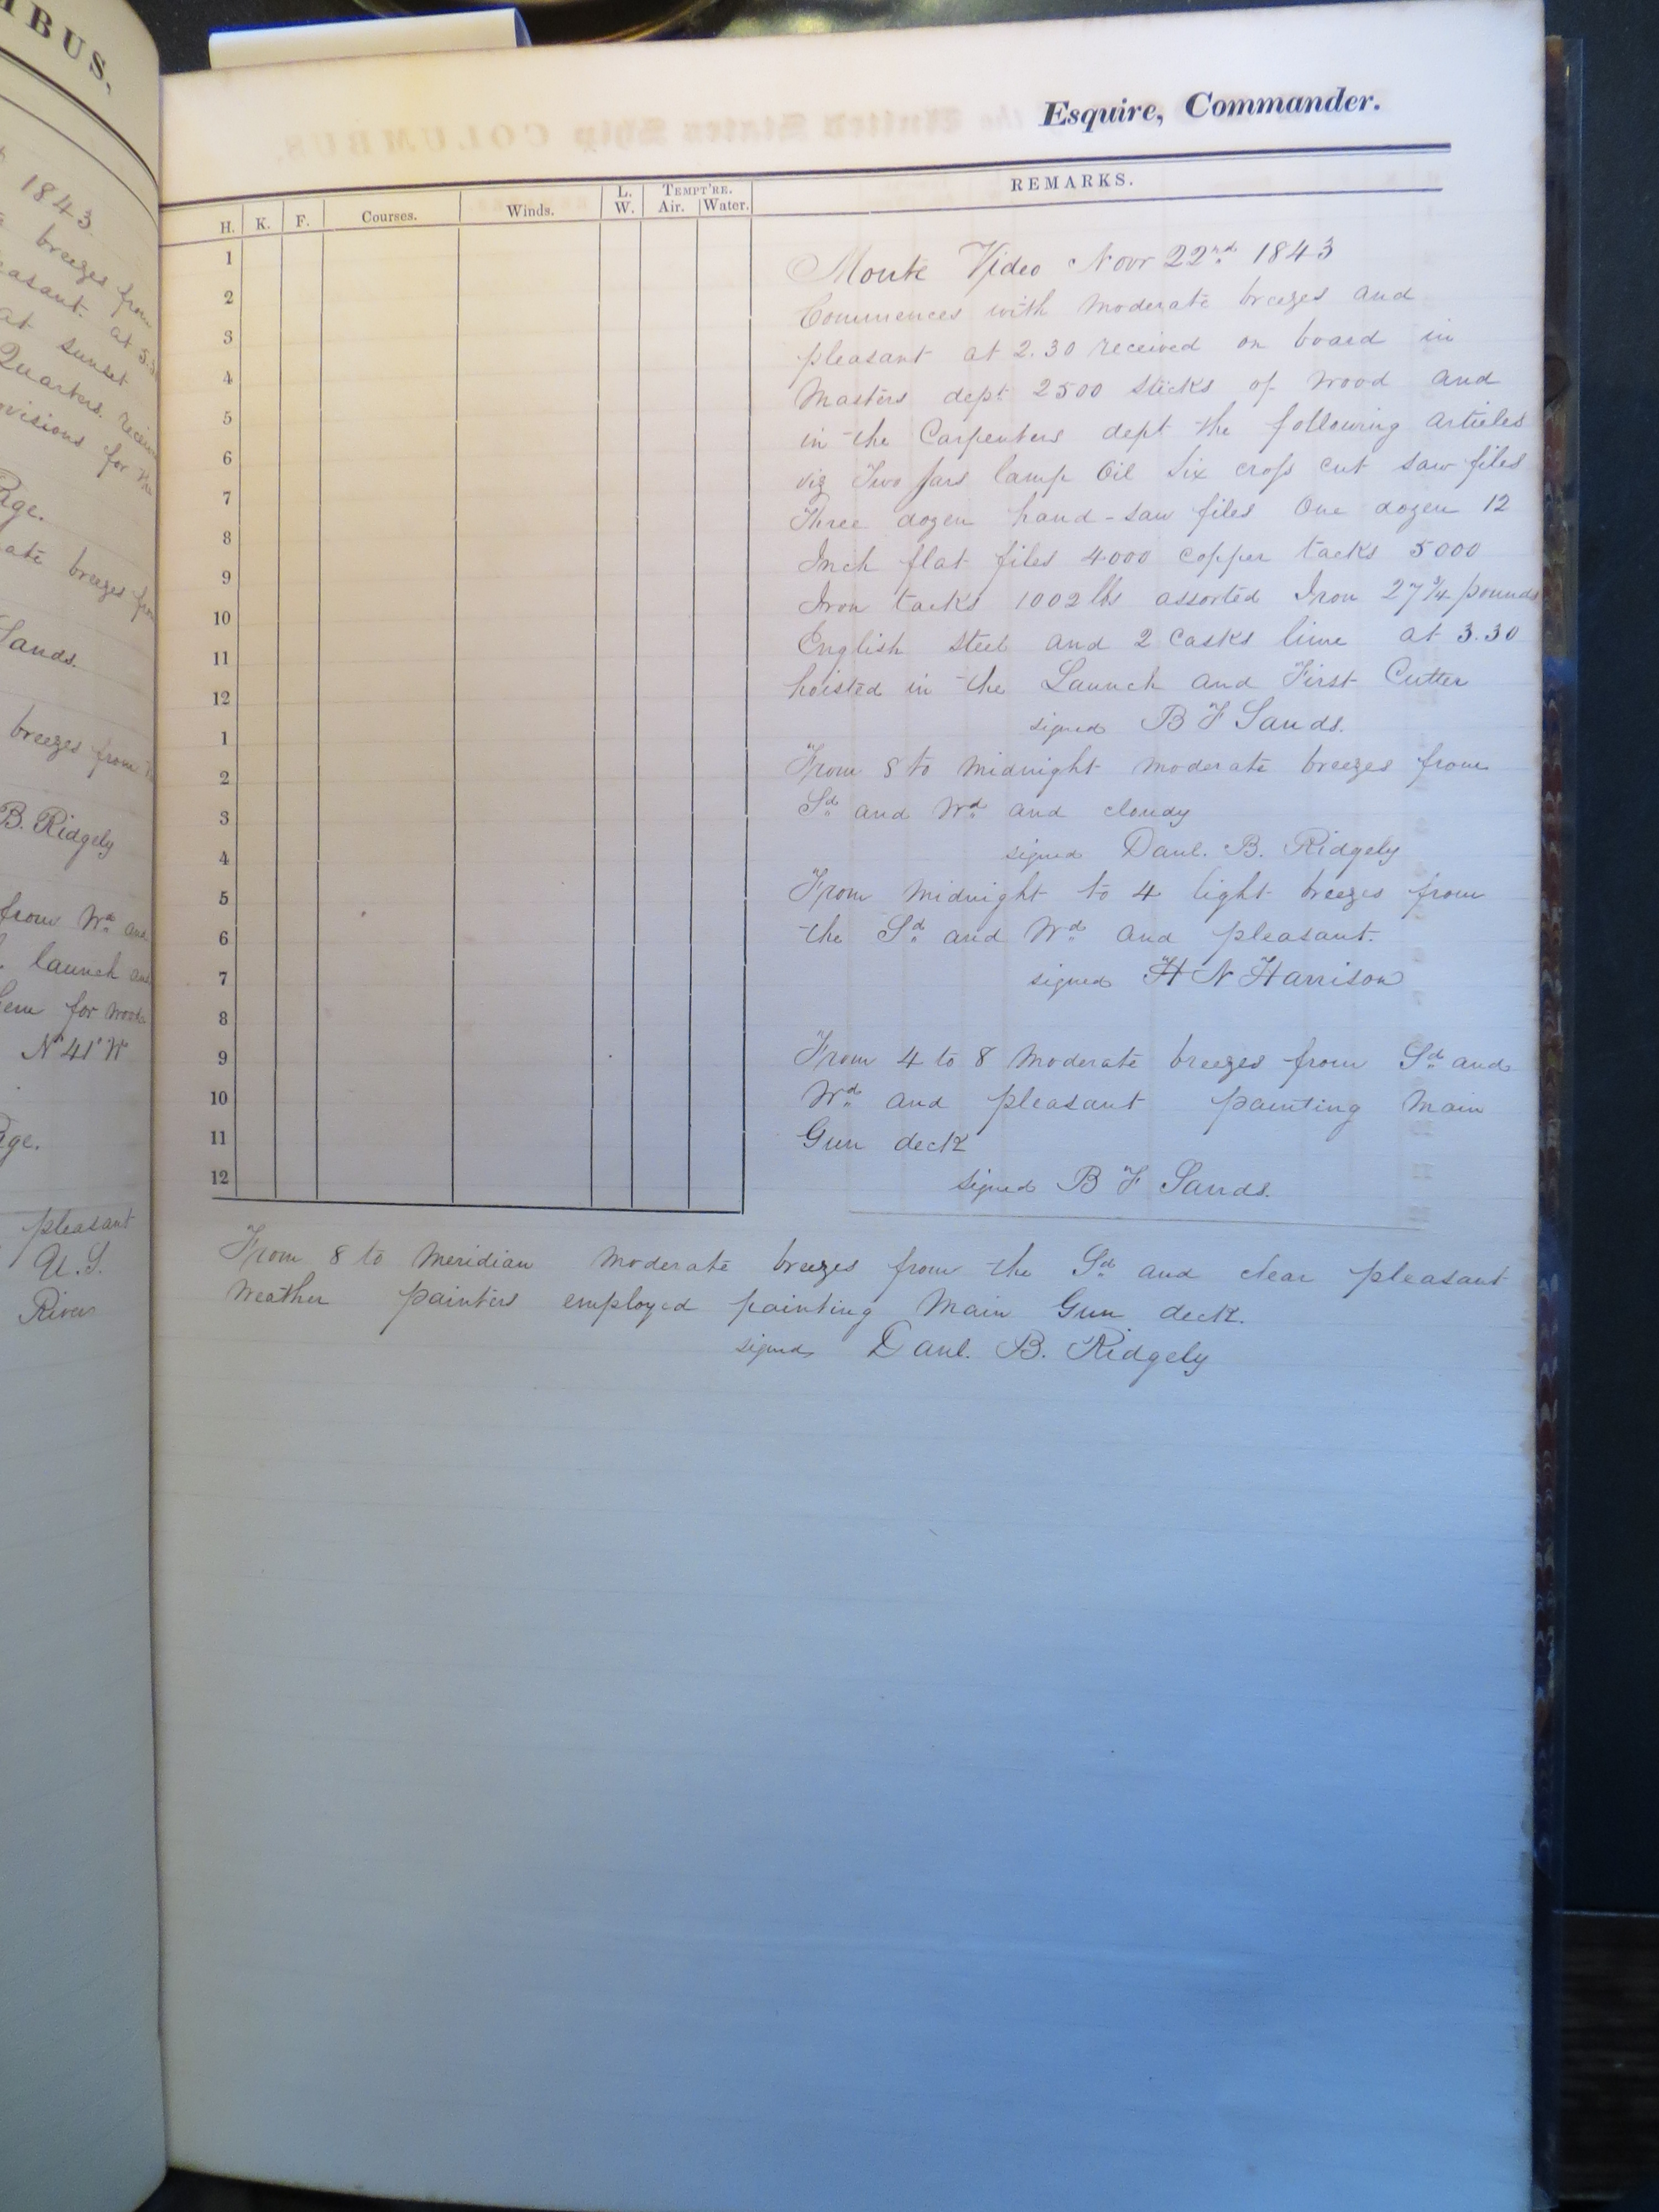 MBUS.
1843
breezes from
easant at 5.
at sunset
Quarters. receiv
ovisions for the
age.
ate breezes from
Sands.
breezes from
B. Ridgely
from Wd and
launch and
for wood
N 41° W
age.
pleasant
U.S.
River
Esquire, Commander.
H. K. F. Courses. Winds. L. W. TEMPT'RE. Air. Water. REMARKS.
1
2
3
4
5
6
7
8
9
10
11
12
1
2
3
4
5
6
7
8
9
10
11
12
Monte Video Novr 22nd 1843
Commences with moderate breezes and
pleasant at 2.30 received on board in
Masters dept 2500 sticks of wood and
in the Carpenters dept the following articles
viz Two Jars lamp Oil Six cross cut saw files
Three dozen hand-saw files One dozen 12
Inch flat files 4000 copper tacks 5000
Iron tacks 1002 lbs assorted Iron 27 3/4 pounds
English steel and 2 Casks lime at 3.30
hoisted in the Launch and First Cutter
signed B F Sands.
From 8 to midnight moderate breezes from
Sd and Wd and cloudy
signed Danl. B. Ridgely
From midnight to 4 light breezes from
the Sd and Wd and pleasant.
signed H N Harrison
From 4 to 8 moderate breezes from Sd and
Wd and pleasant painting main
Gun deck
signed B F Sands.
From 8 to meridian moderate breezes from the Sd and clear pleasant
weather painters employed painting Main Gun deck.
signed Danl. B. Ridgely